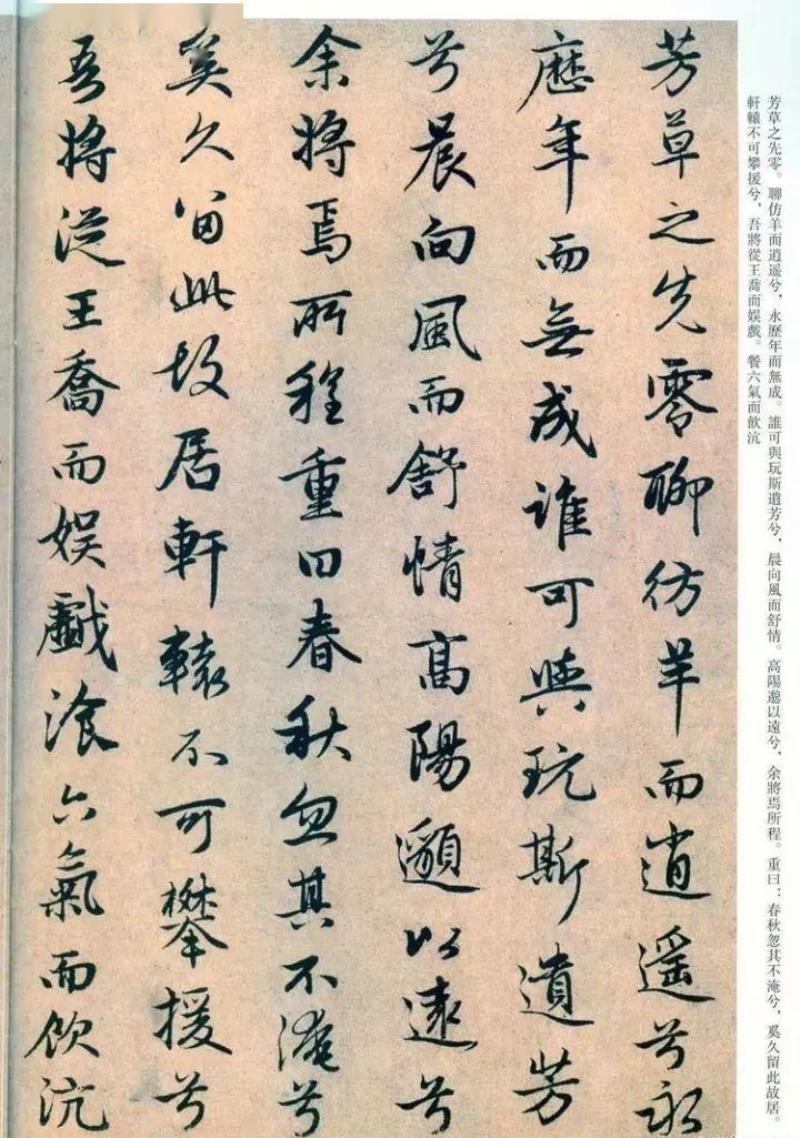 芳草之先零聊彷羊而逍遥兮永
歷年而無成誰可與玩斯遺芳
兮晨向風而舒情高陽邈以遠兮
余將焉所程重曰春秋忽其不淹兮
奚久留此故居軒轅不可攀援兮
吾將從王喬而娛戲飡六氣而飲沆
芳草之先零。聊仿羊而逍遥兮，永歷年而無成。誰可與玩斯遺芳兮，晨向風而舒情。高陽邈以遠兮，余將焉所程。重曰：春秋忽其不淹兮，奚久留此故居。
軒轅不可攀援兮，吾將從王喬而娛戲。餐六氣而飲沆